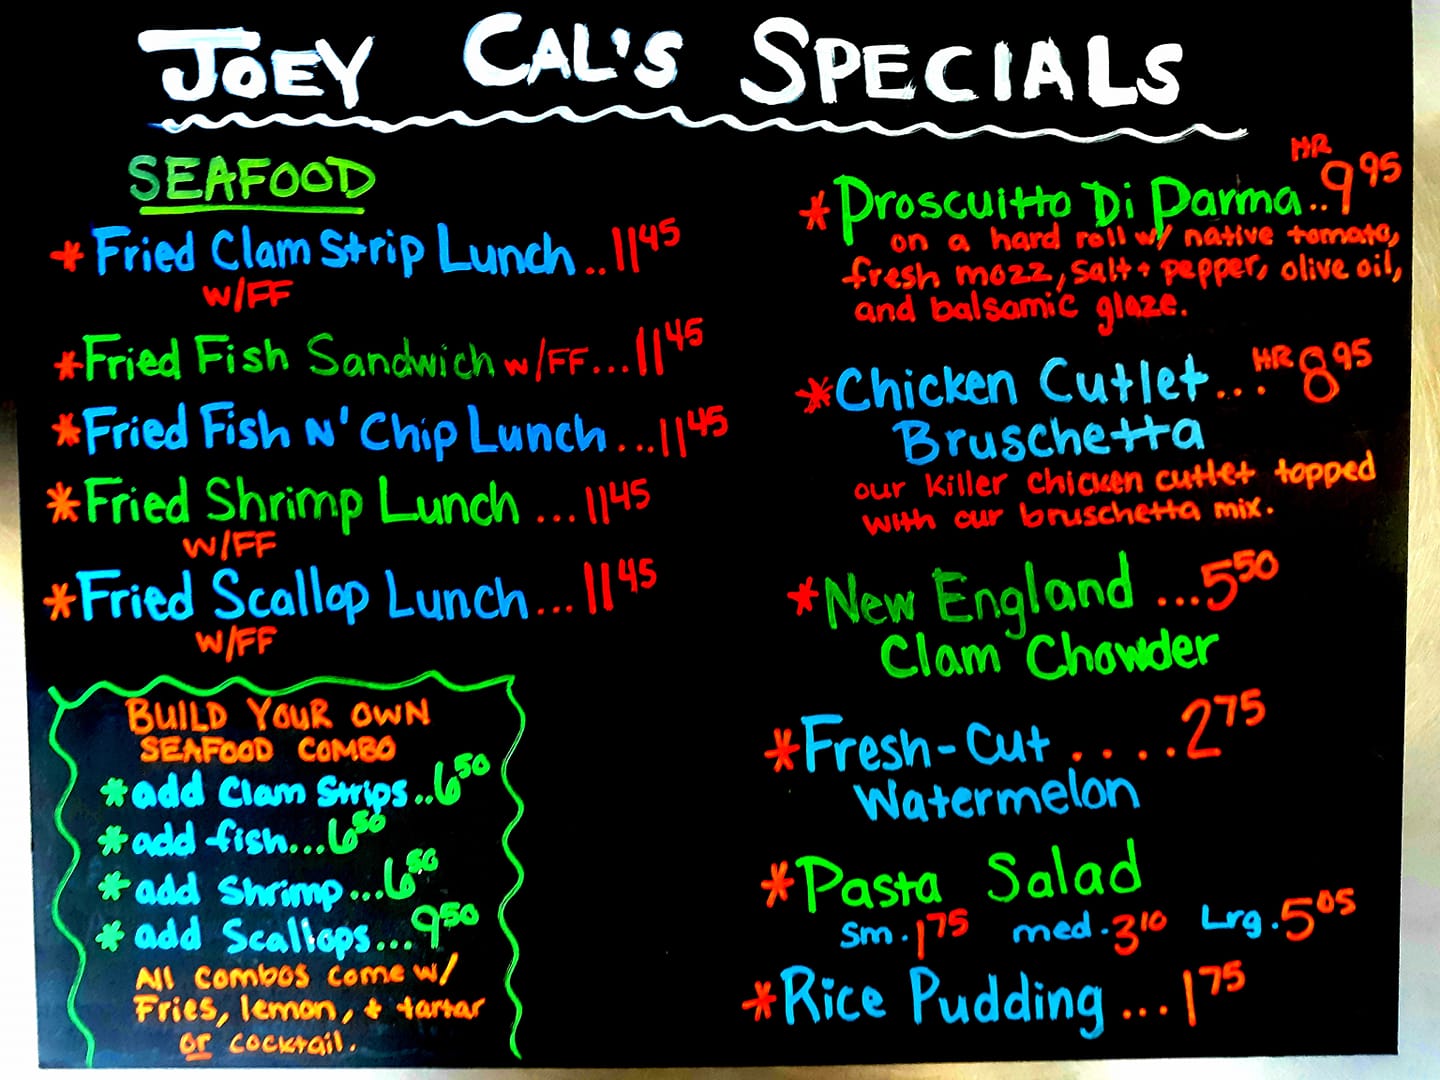 JOEY CAL'S SPECIALS
SEAFOOD
* Fried Clam Strip Lunch .. 11 45
w/FF
* Fried Fish Sandwich w/FF... 11 45
* Fried Fish N' Chip Lunch ... 11 45
* Fried Shrimp Lunch ... 11 45
w/FF
* Fried Scallop Lunch ... 11 45
w/FF
BUILD YOUR OWN
SEAFOOD COMBO
* add Clam Strips.. 6 50
* add fish... 6 50
* add Shrimp ... 6 50
* add Scallops... 9 50
All combos come w/
Fries, lemon, + tartar
or cocktail.
* Proscuitto Di Parma .. HR 9 95
on a hard roll w/ native tomato,
fresh mozz, salt + pepper, olive oil,
and balsamic glaze.
* Chicken Cutlet ... HR 8 95
Bruschetta
our killer chicken cutlet topped
with our bruschetta mix.
* New England ... 5 50
Clam Chowder
* Fresh-Cut . . . . . 2 75
Watermelon
* Pasta Salad
Sm. 1 75 med. 3 10 Lrg. 5 05
* Rice Pudding ... 1 75